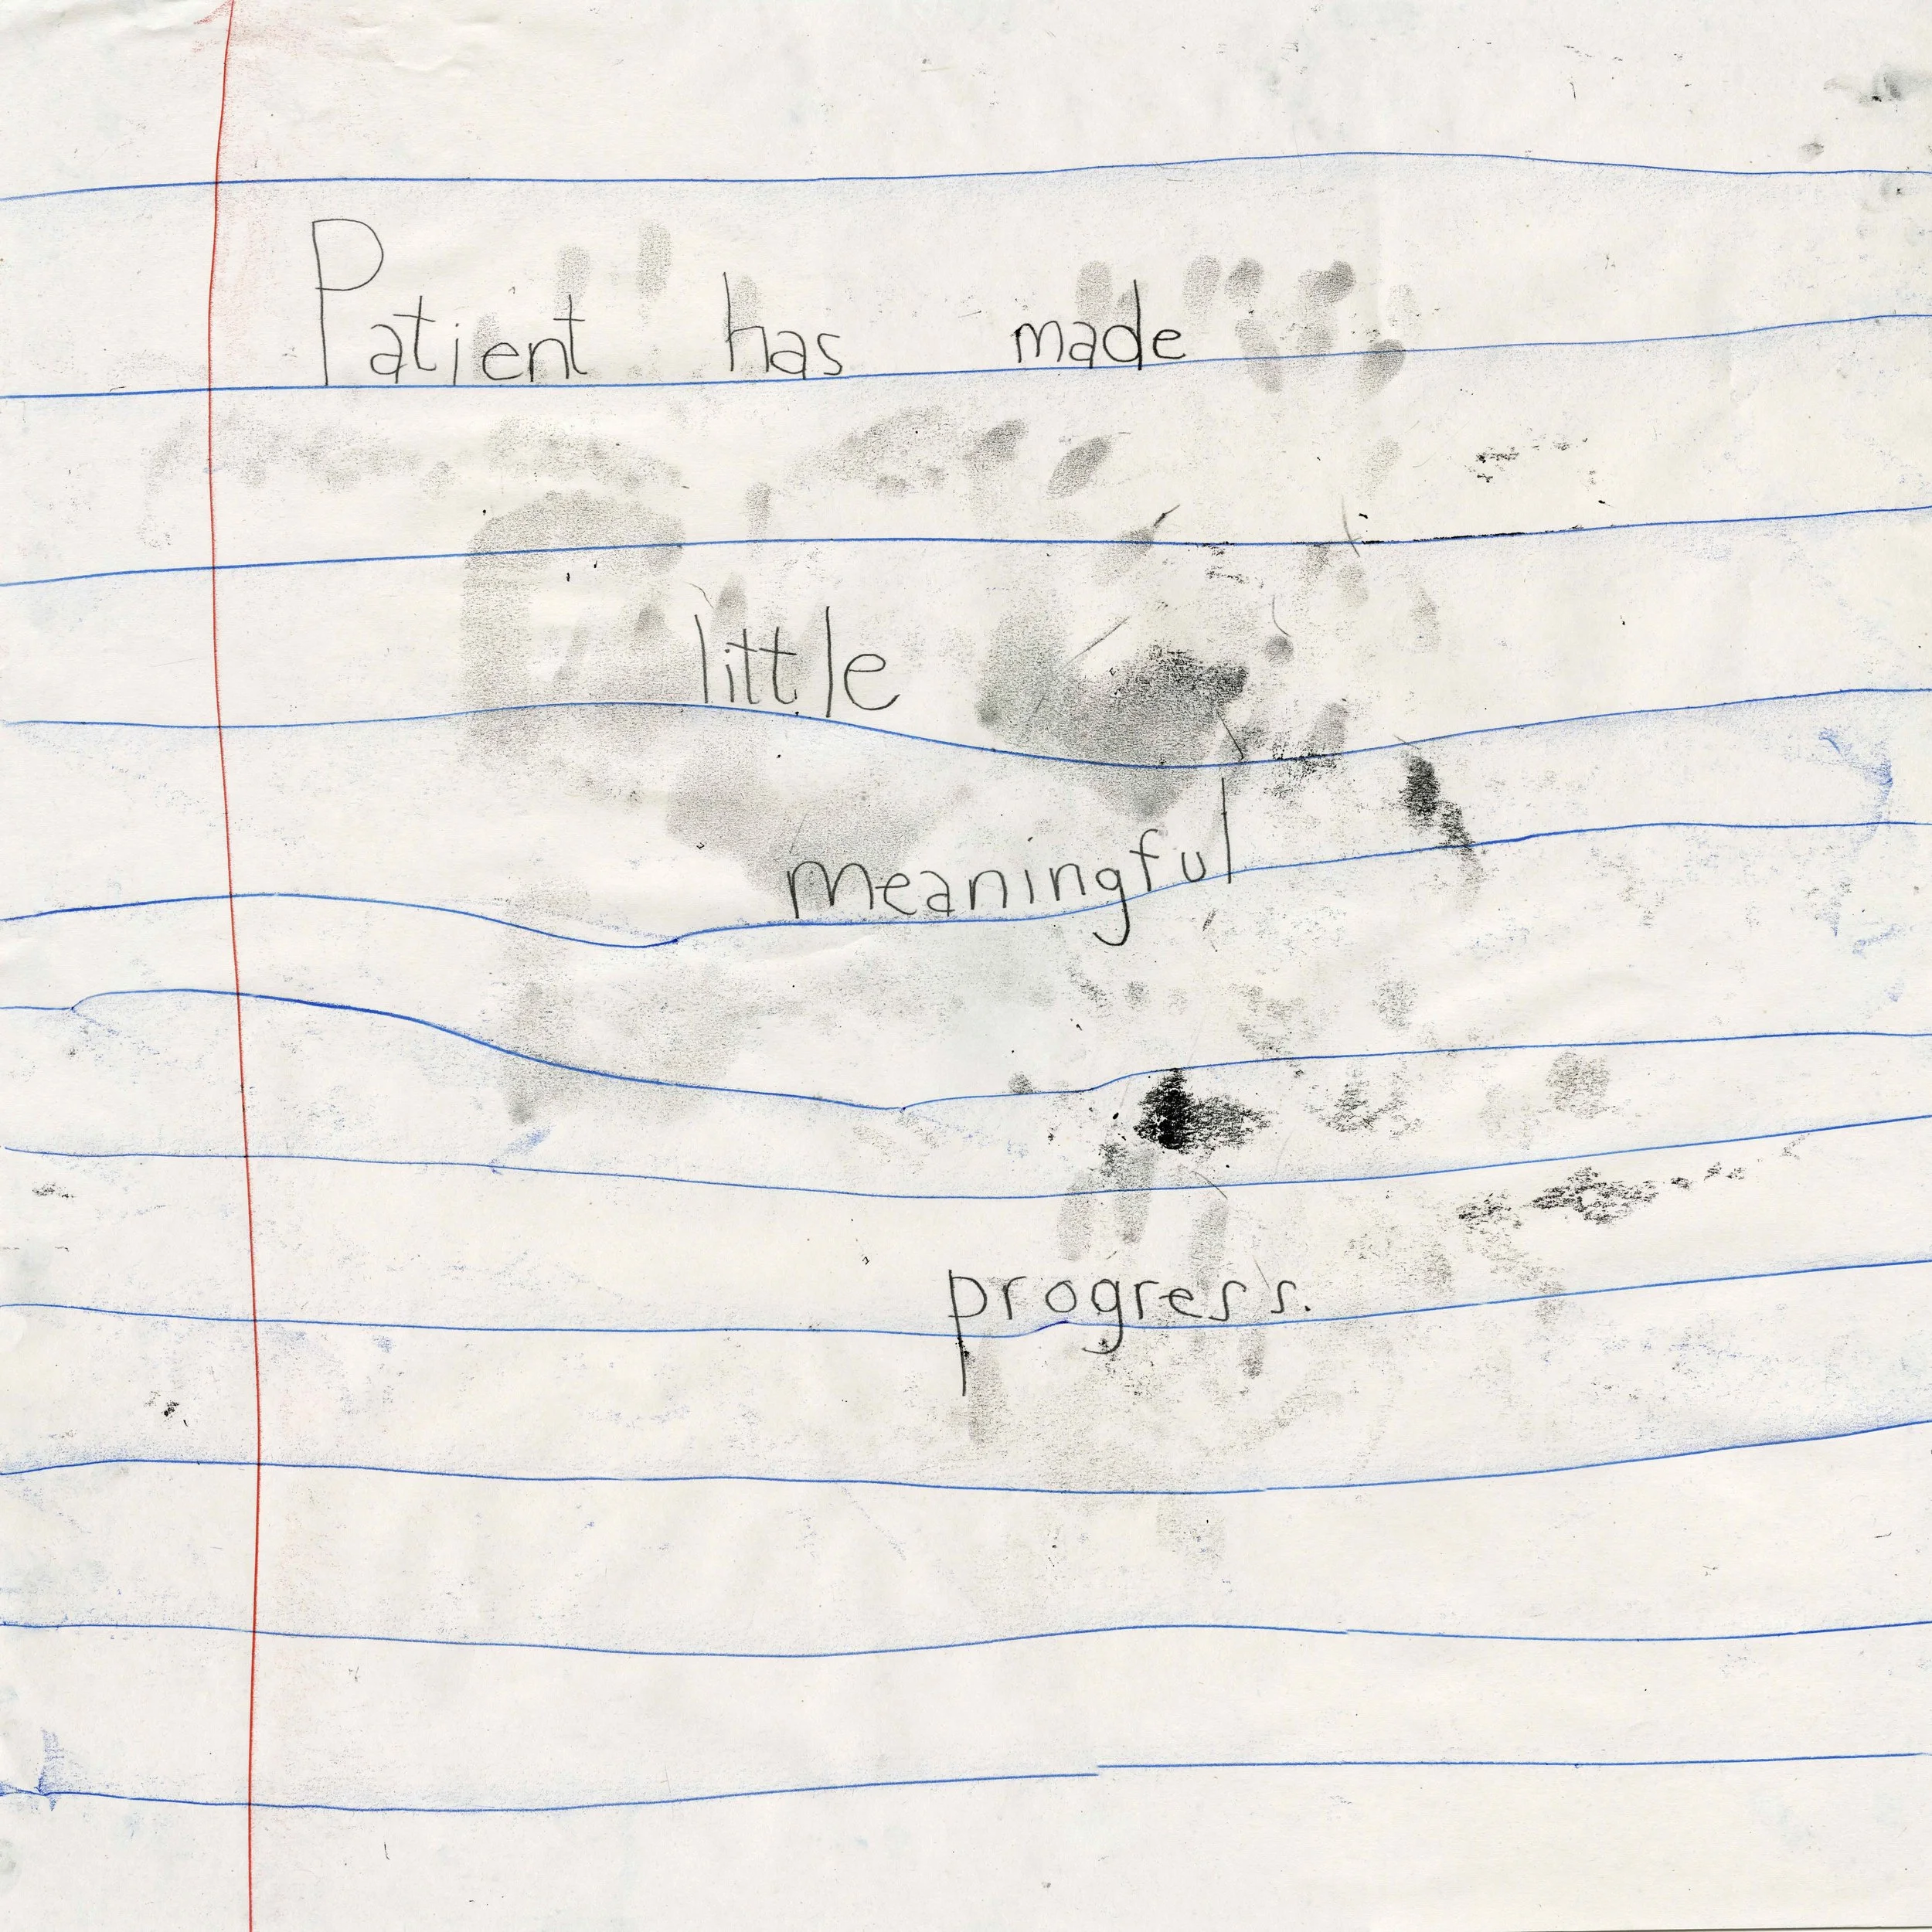 Patient has made
little
meaningful
progress.